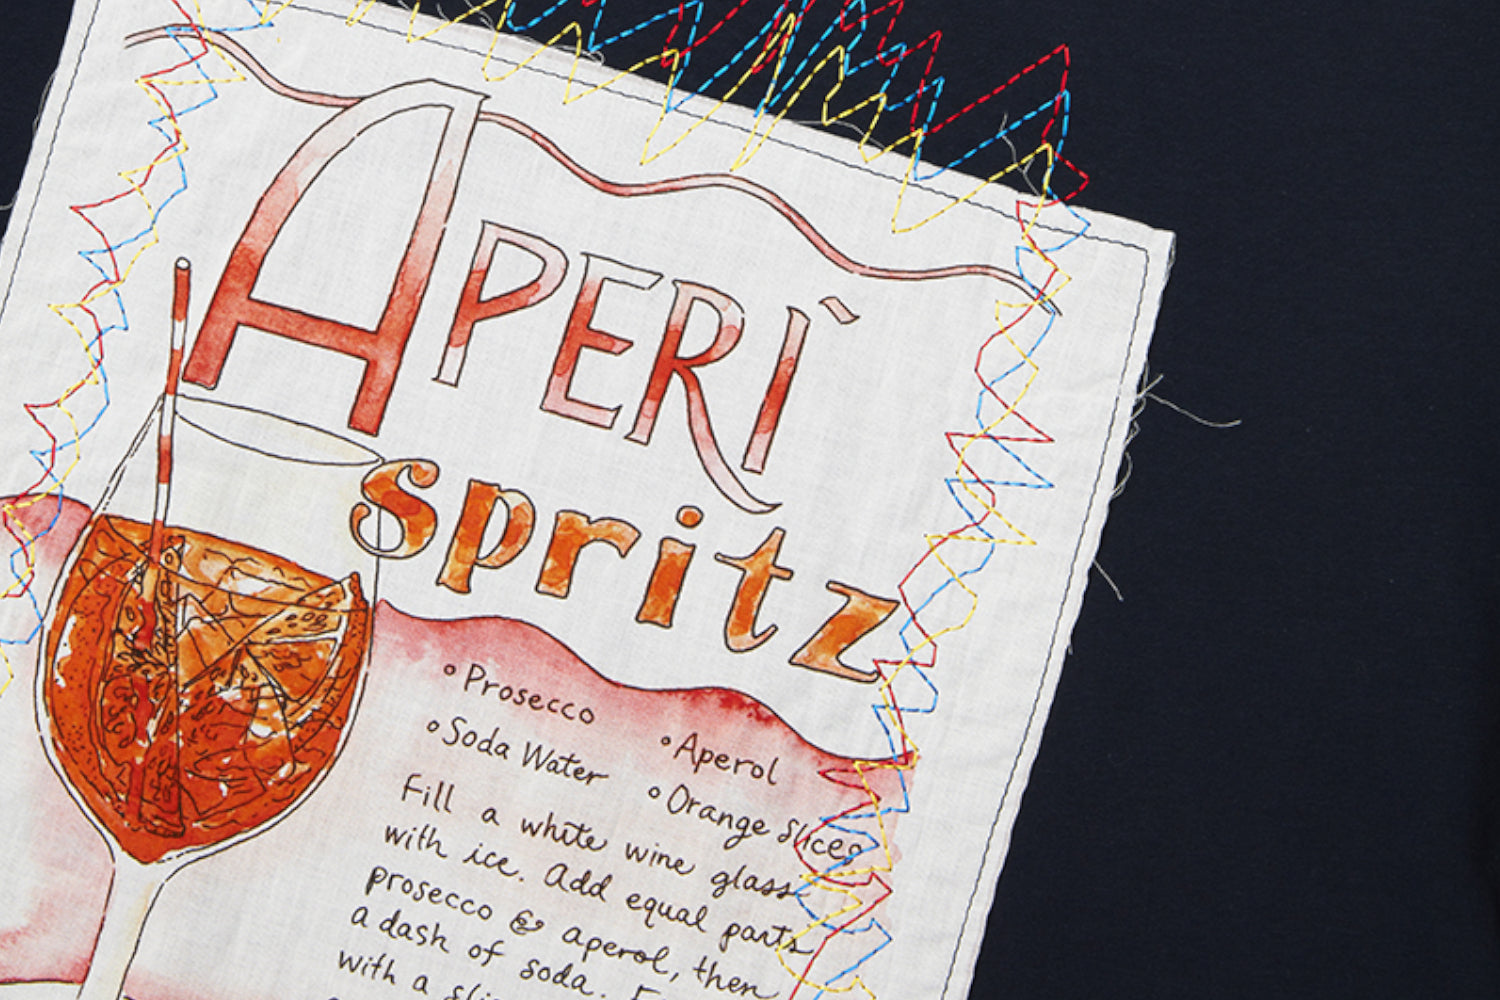 APERÌ
spritz
Prosecco
Soda Water
Aperol
Orange Slices
Fill a white wine glass
with ice. Add equal parts
prosecco & aperol, then
a dash of soda.
with a